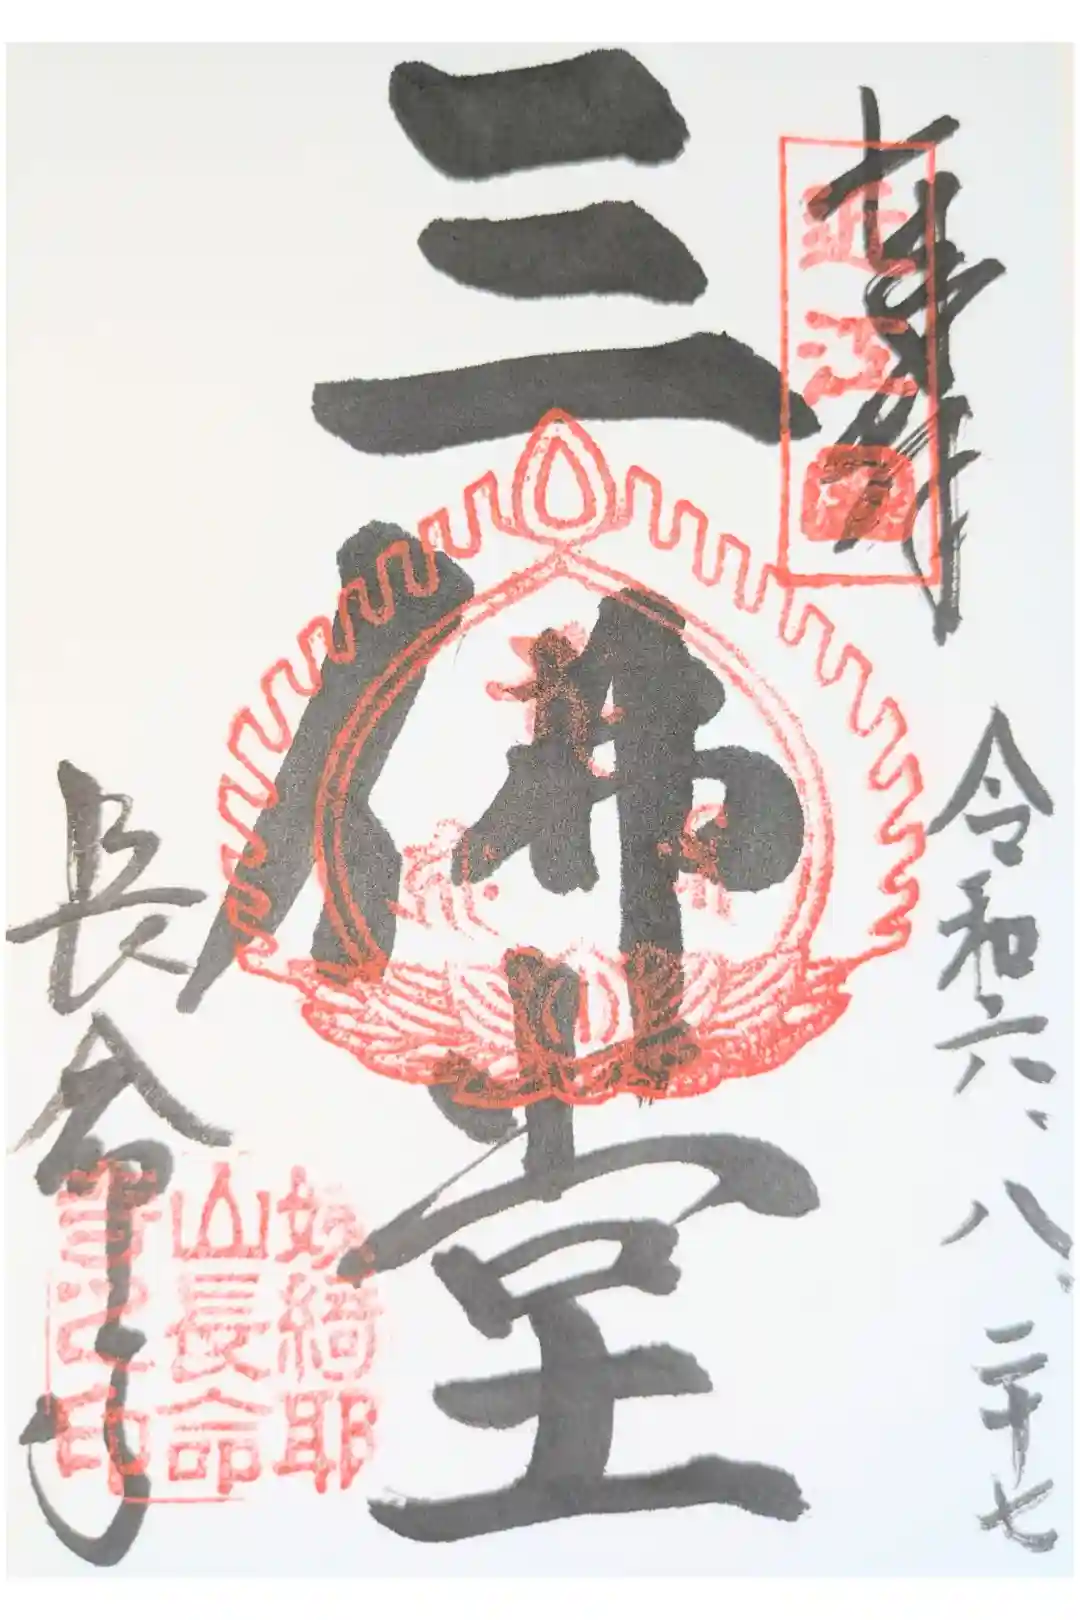 奉拝
近江
令和六、八、二十七
三佛堂
長命寺
姨綺耶
山長命
寺之印